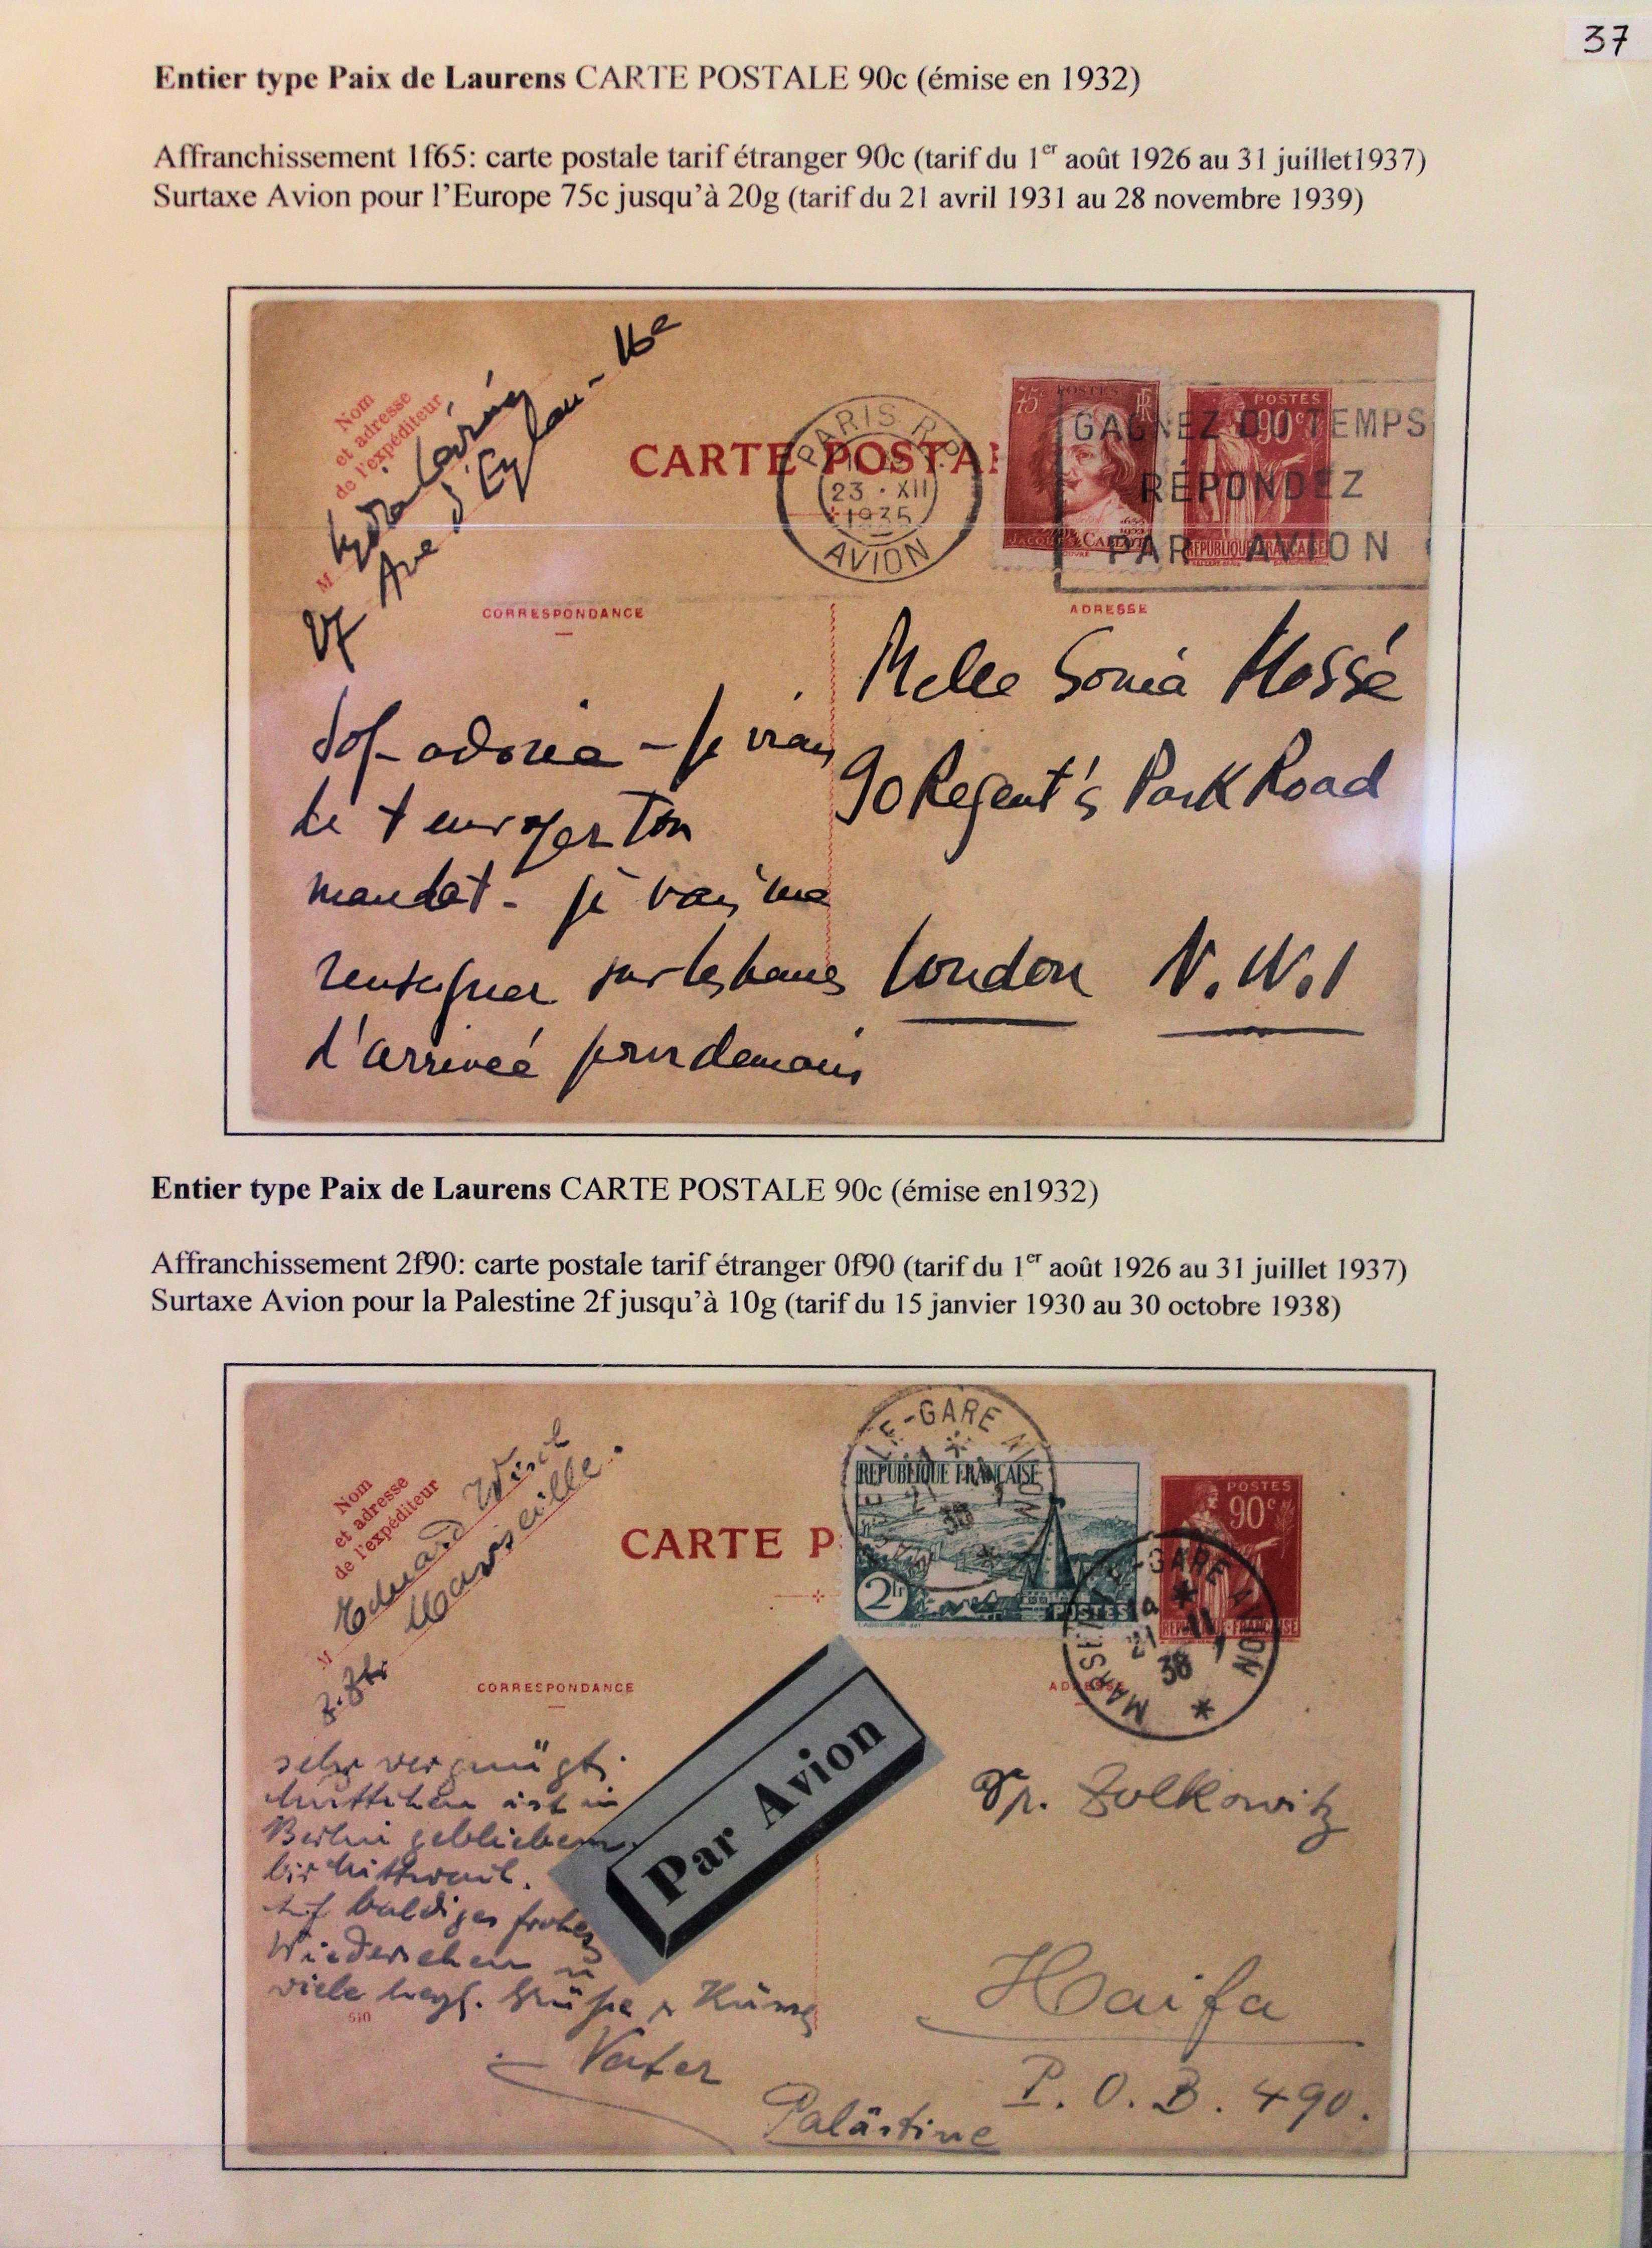 37
Entier type Paix de Laurens CARTE POSTALE 90c (émise en 1932)
Affranchissement 1f65: carte postale tarif étranger 90c (tarif du 1er août 1926 au 31 juillet1937)
Surtaxe Avion pour l'Europe 75c jusqu'à 20g (tarif du 21 avril 1931 au 28 novembre 1939)
Nom
et adresse
de l'expéditeur
M
27 Ave d'Eylau - 16e
CARTE POSTA
PARIS R.P.
23 · XII
1935
AVION
75c POSTES RF
JACQUES CALLOT
POSTES
90c
REPUBLIQUE FRANÇAISE
GAGNEZ DU TEMPS
RÉPONDEZ
PAR AVION
CORRESPONDANCE
ADRESSE
Melle Sonia Mossé
90 Regent's Park Road
London N.W.1
adorée - je viens
de t'envoyer ton
mandat - je vais me
renseigner sur les heures
d'arrivée pour demain
Entier type Paix de Laurens CARTE POSTALE 90c (émise en1932)
Affranchissement 2f90: carte postale tarif étranger 0f90 (tarif du 1er août 1926 au 31 juillet 1937)
Surtaxe Avion pour la Palestine 2f jusqu'à 10g (tarif du 15 janvier 1930 au 30 octobre 1938)
Nom
et adresse
de l'expéditeur
M
Eduard
Marseille.
CARTE P
E-GARE
REPUBLIQUE FRANÇAISE
2fr
POSTES
POSTES
90c
REPUBLIQUE-FRANÇAISE
MARSEILLE-GARE AVION
21
38
CORRESPONDANCE
ADRESSE
Par Avion
sehr vergnügt.
Muttchen ist in
Berlin geblieben.
bis Mittwoch.
Auf baldiges frohes
Wiedersehen u
viele herzl. Grüße
Vater
510
Zolkowitz
Haifa
P.O.B. 490.
Palästine